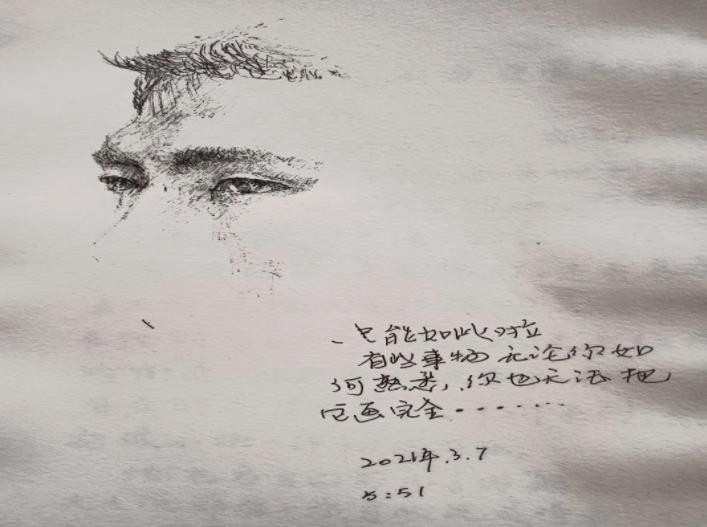 只能如此啦
有些事物无论你如
何熟悉，你也无法把
它画完全········
2021年.3.7
5:51